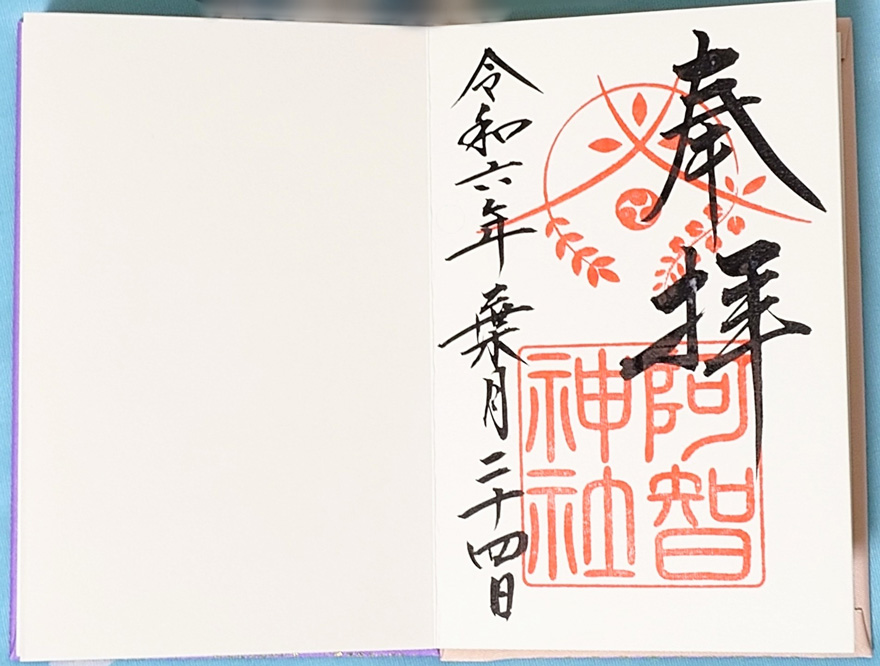 奉拝
阿智神社
令和六年葉月二十四日